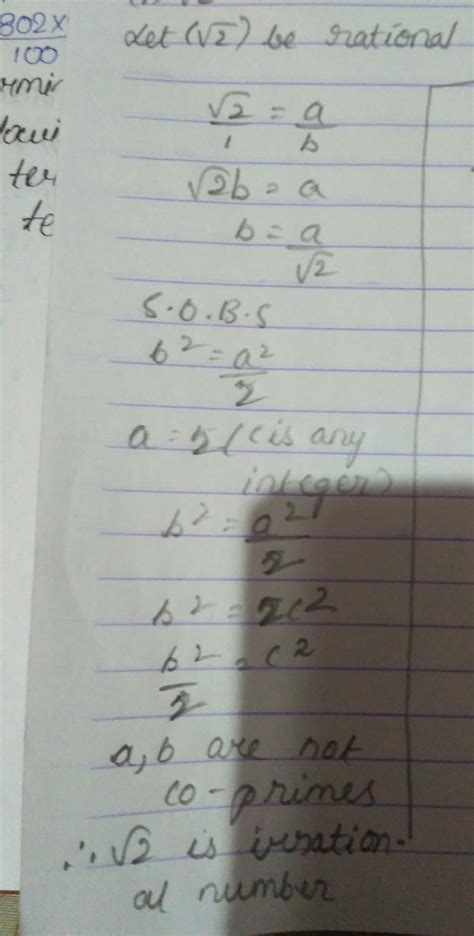 802x
100
Let (√2) be rational
√2/1 = a/b
√2b = a
b = a/√2
S.O.B.S
b² = a²/2
a = 2 (c is any
integer)
b² = a²/2
b² = 2c²
b²/2 = c²
a, b are not
co-primes
∴ √2 is irration-
al number